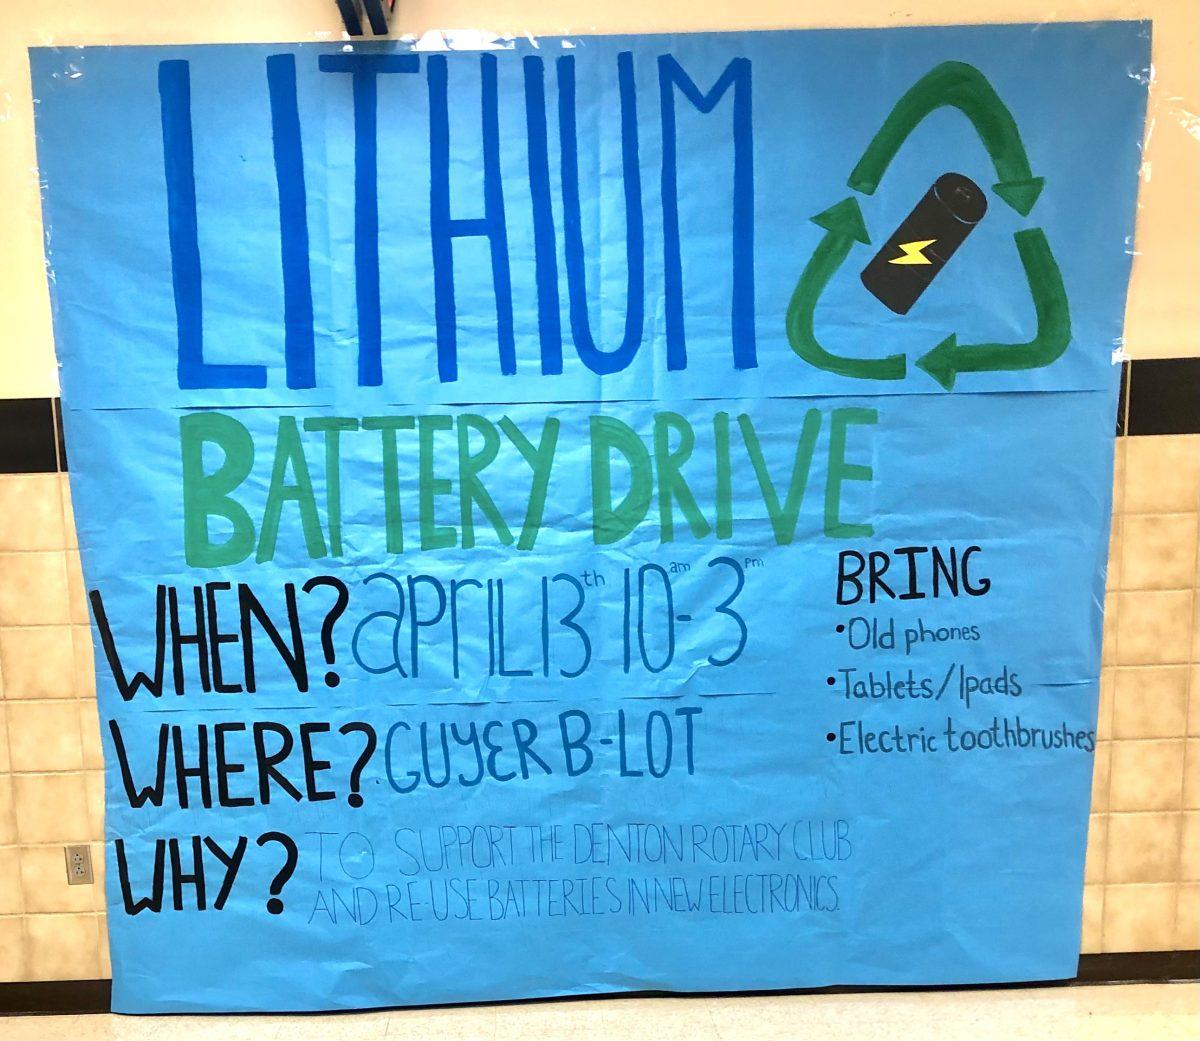 LITHIUM
BATTERY DRIVE
WHEN? APRIL 13th 10am-3pm
WHERE? GUYER B-LOT
WHY? TO SUPPORT THE DENTON ROTARY CLUB
AND RE-USE BATTERIES IN NEW ELECTRONICS.
BRING
•Old phones
•Tablets/Ipads
•Electric toothbrushes